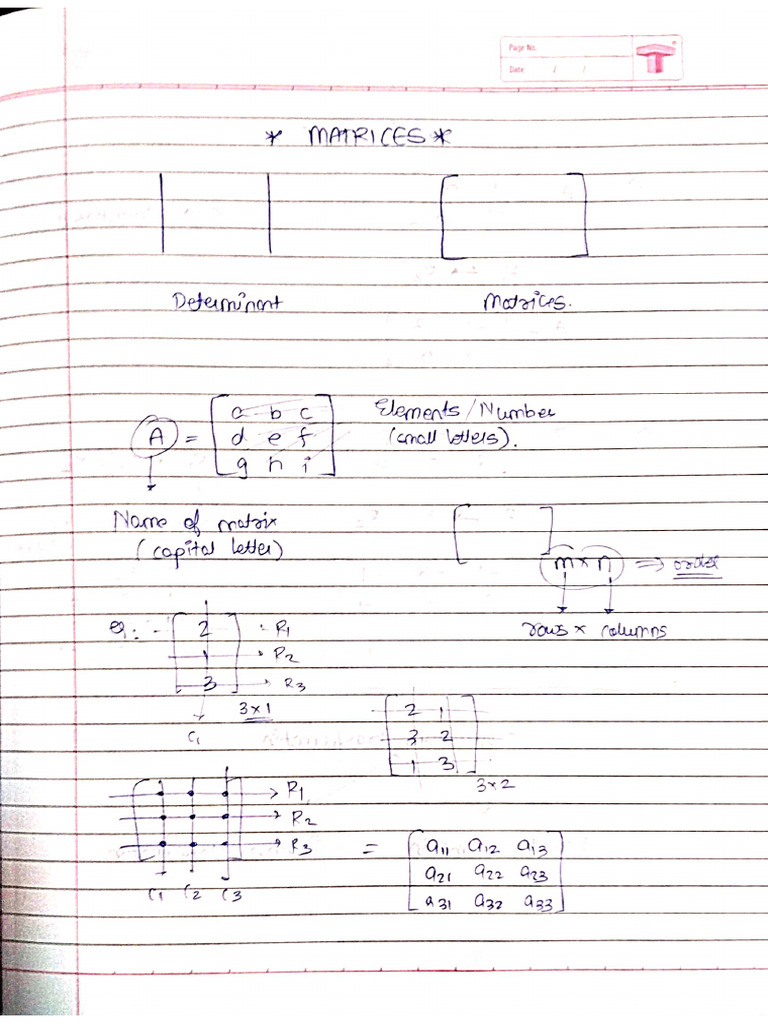 Page No.
Date / /
* MATRICES *
Determinant
Matrices.
A = [ a b c
d e f
g h i ]
Elements / Number
(small letters).
Name of matrix
(capital letter)
m × n ⇒ order
rows × columns
eg:- [ 2 : R1
1 → R2
3 ] → R3
3 × 1
C1
[ 2 1
3 2
1 3 ]
3 × 2
→ R1
→ R2
→ R3
C1 C2 C3
= [ a11 a12 a13
a21 a22 a23
a31 a32 a33 ]